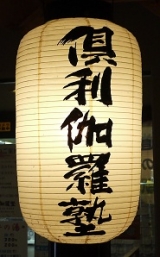 倶利伽羅塾